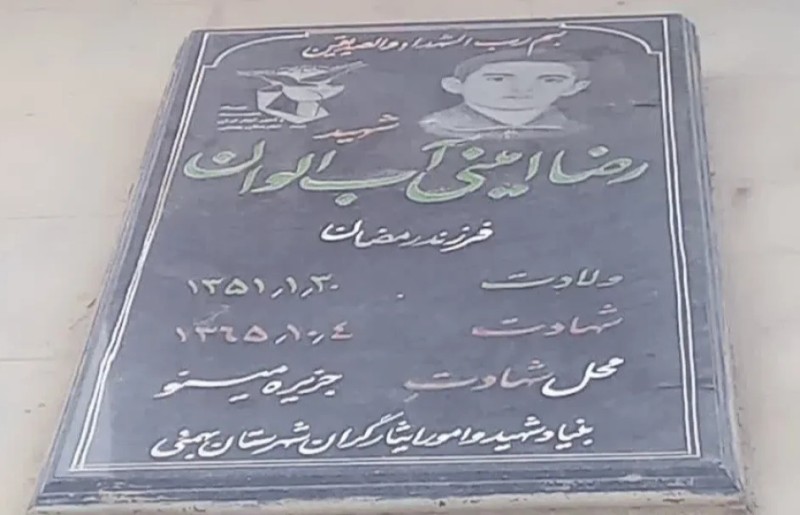 بسم رب الشهداء و الصدیقین
شهید
رضا امینی آب الوان
فرزند رمضان
ولادت ۱۳۵۱٫۱٫۳۰
شهادت ۱۳۶۵٫۱۰٫۴
محل شهادت جزیره مینو
بنیاد شهید و امور ایثارگران شهرستان بهمئی